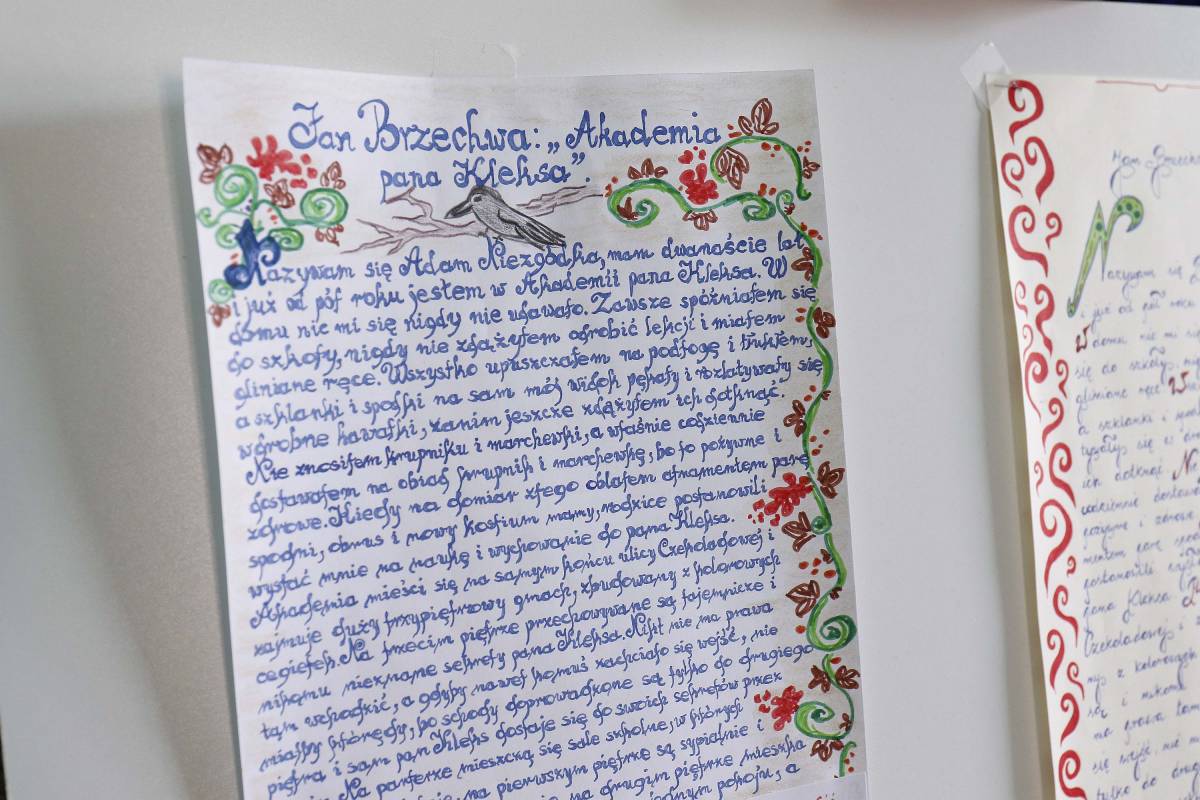 Jan Brzechwa: „Akademia
pana Kleksa”.
Nazywam się Adam Niezgódka, mam dwanaście lat
i już od pół roku jestem w Akademii pana Kleksa. W
domu nic mi się nigdy nie udawało. Zawsze spóźniałem się
do szkoły, nigdy nie zdążyłem odrobić lekcji i miałem
gliniane ręce. Wszystko upuszczałem na podłogę i tłukłem,
a szklanki i spodki na sam mój widok pękały i rozlatywały się
w drobne kawałki, zanim jeszcze zdążyłem ich dotknąć.
Nie znosiłem krupniku i marchewki, a właśnie codziennie
dostawałem na obiad krupnik i marchewkę, bo to pożywne i
zdrowe. Kiedy na domiar złego oblałem atramentem parę
spodni, obrus i nowy kostium mamy, rodzice postanowili
wysłać mnie na naukę i wychowanie do pana Kleksa.
Akademia mieści się na samym końcu ulicy Czekoladowej i
zajmuje duży trzypiętrowy gmach, zbudowany z kolorowych
cegiełek. Na trzecim piętrze przechowywane są tajemnicze i
nikomu nieznane sekrety pana Kleksa. Nikt nie ma prawa
tam wchodzić, a gdyby nawet komuś zachciało się wejść, nie
miałby którędy, bo schody doprowadzone są tylko do drugiego
piętra i sam pan Kleks dostaje się do swoich sekretów przez
Na parterze mieszczą się sale szkolne, w których
na pierwszym piętrze są sypialnie i
na drugim piętrze mieszka
jednym pokoju, a
Nazywam się
i już od pół roku
W domu nic mi się
się do szkoły,
gliniane ręce. W
a szklanki i
ich dotknąć. N
codziennie
pożywne i zdrowe
postanowili
pana Kleksa
Czekoladowej i
z kolorowych
są i nikomu
ma prawa tam
się wejść, nie
tylko do